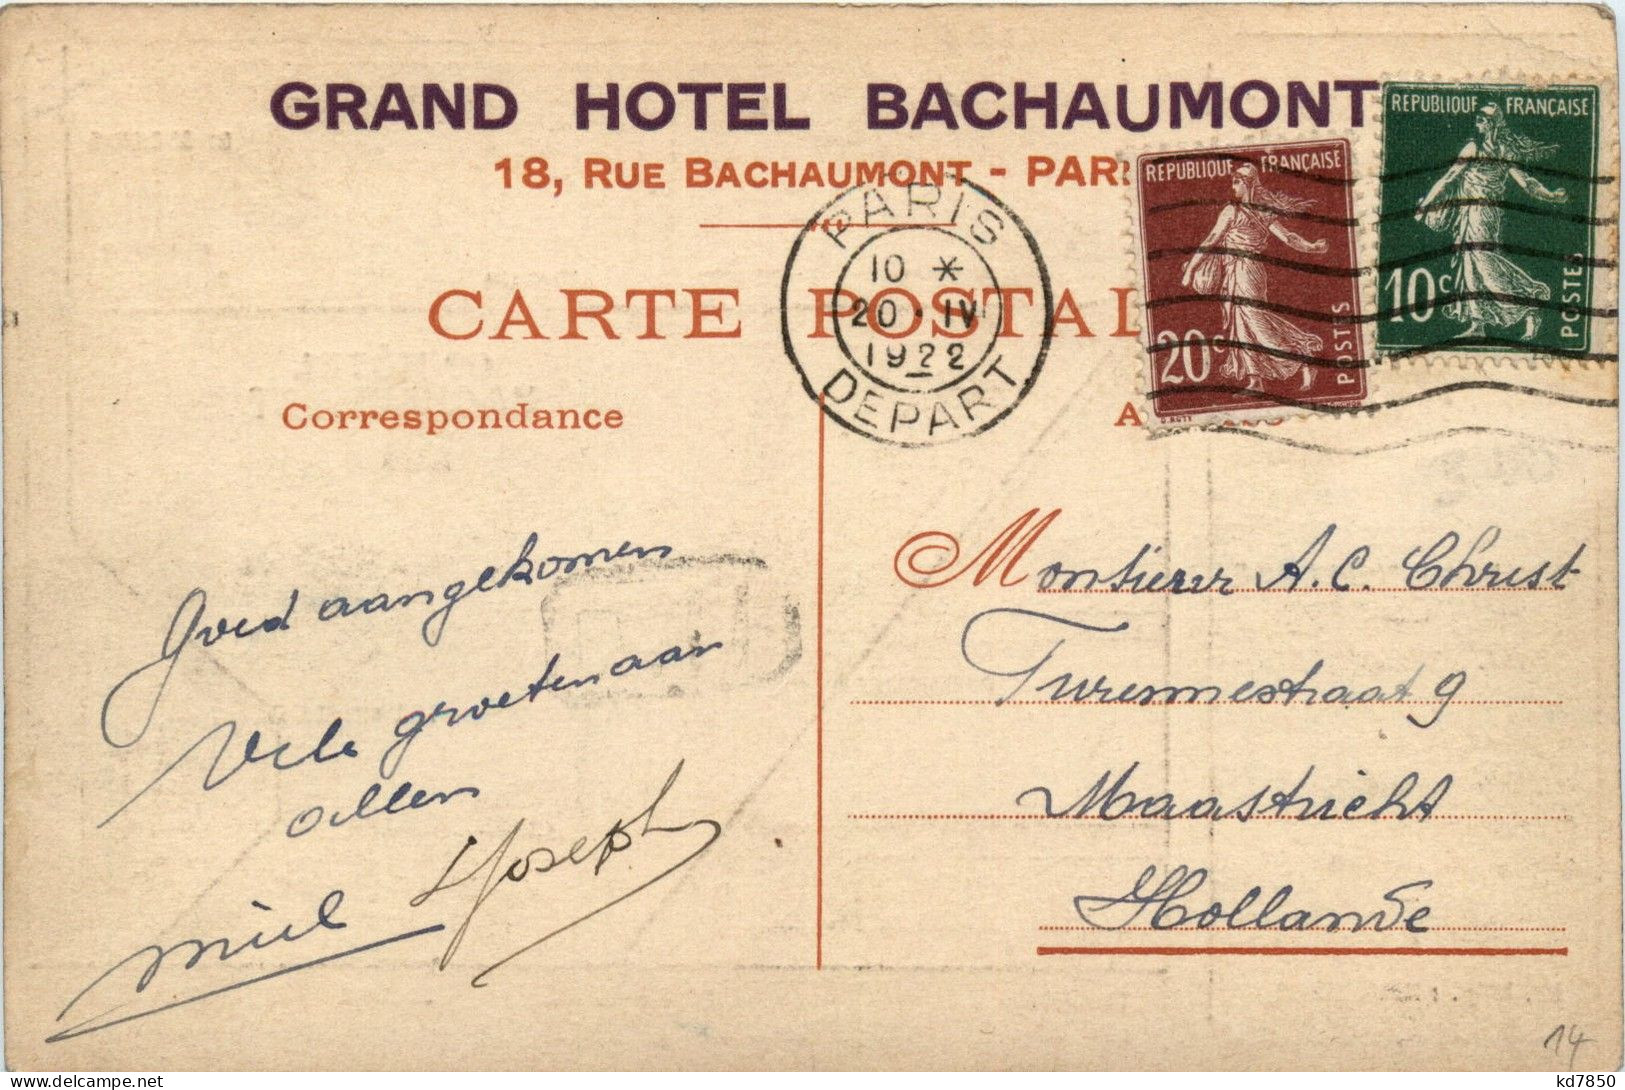 GRAND HOTEL BACHAUMONT
18, RUE BACHAUMONT - PARI
REPUBLIQUE FRANÇAISE
10c
POSTES
REPUBLIQUE FRANÇAISE
20c
POSTES
PARIS
10 *
20 · IV
1922
DEPART
CARTE POSTAL
Correspondance
Goed aangekomen
Vele groeten aan
allen
Miel Joseph
Monsieur A. C. Christ
Turennestraat 9
Maastricht
Hollande
14
kd7850